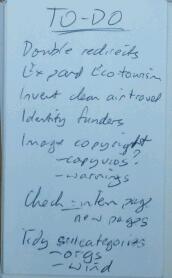 TO-DO
Double redirects
Expand Ecotourism
Invent clean air travel
Identity funders
Image copyright
- copyvios?
- warnings
Check = intern page
new pages
Tidy subcategories
- orgs
- wind